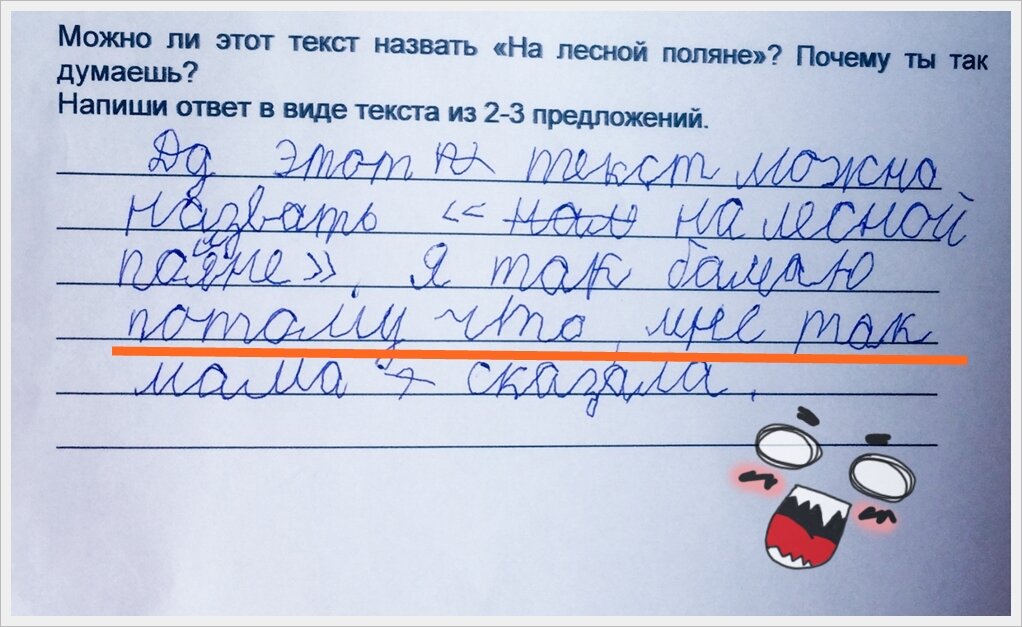 Можно ли этот текст назвать «На лесной поляне»? Почему ты так
думаешь?
Напиши ответ в виде текста из 2-3 предложений.
Да этот текст можно
назвать « на лесной
поляне». Я так
потому что, мне так
мама сказала.